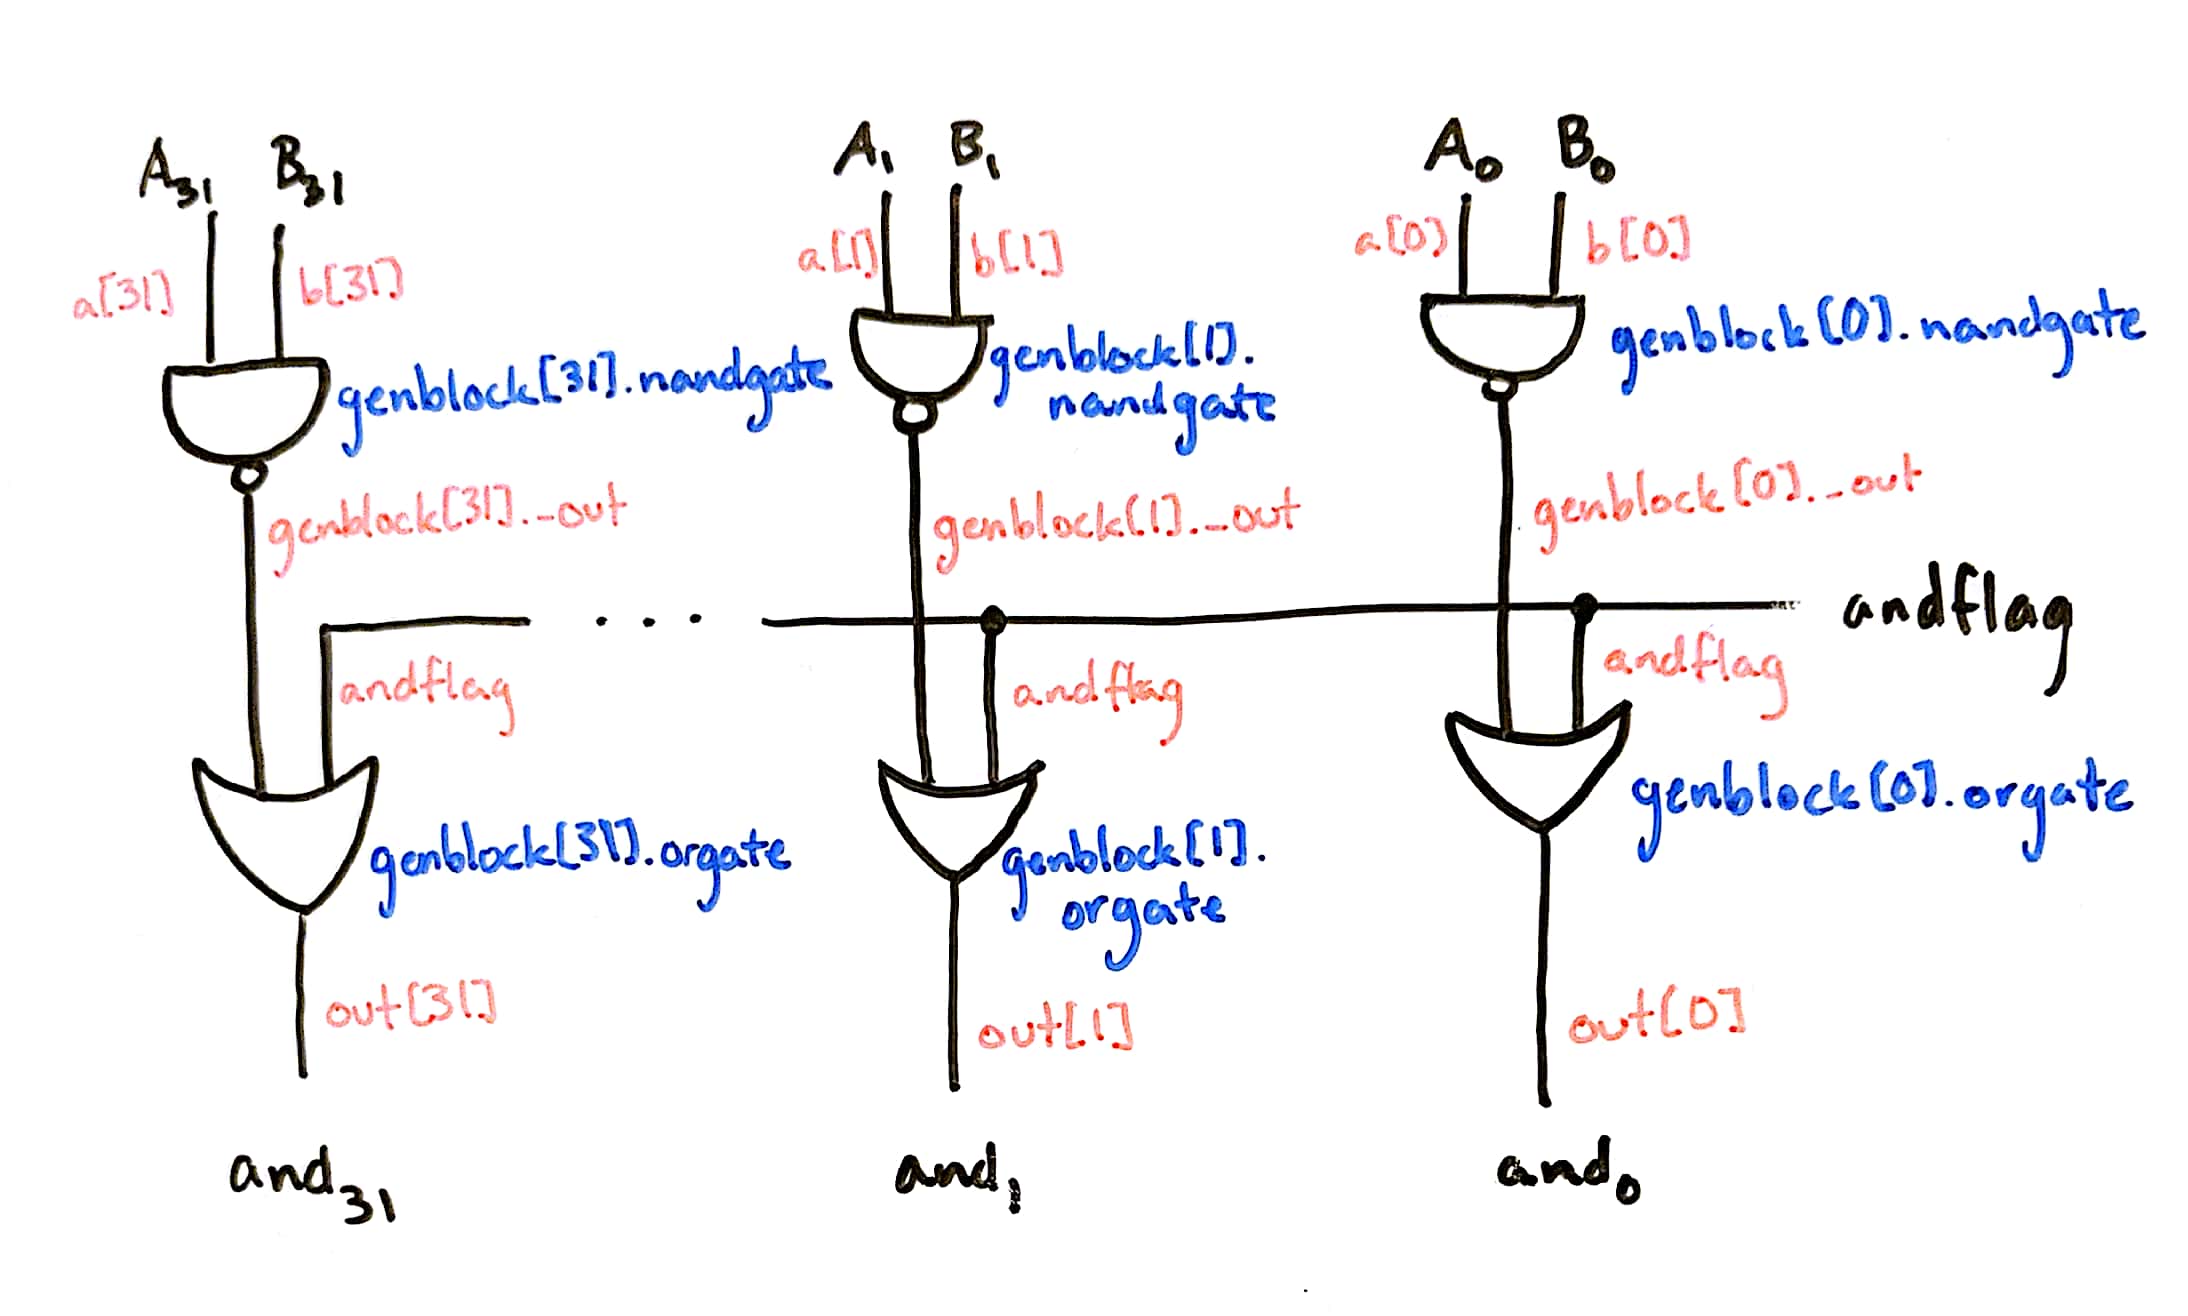 A31 B31
a[31] b[31]
genblock[31].nandgate
genblock[31]._out
andflag
genblock[31].orgate
out[31]
and31
A1 B1
a[1] b[1]
genblock[1].
nandgate
genblock[1]._out
andflag
genblock[1].
orgate
out[1]
and1
A0 B0
a[0] b[0]
genblock[0].nandgate
genblock[0]._out
andflag
andflag
genblock[0].orgate
out[0]
and0